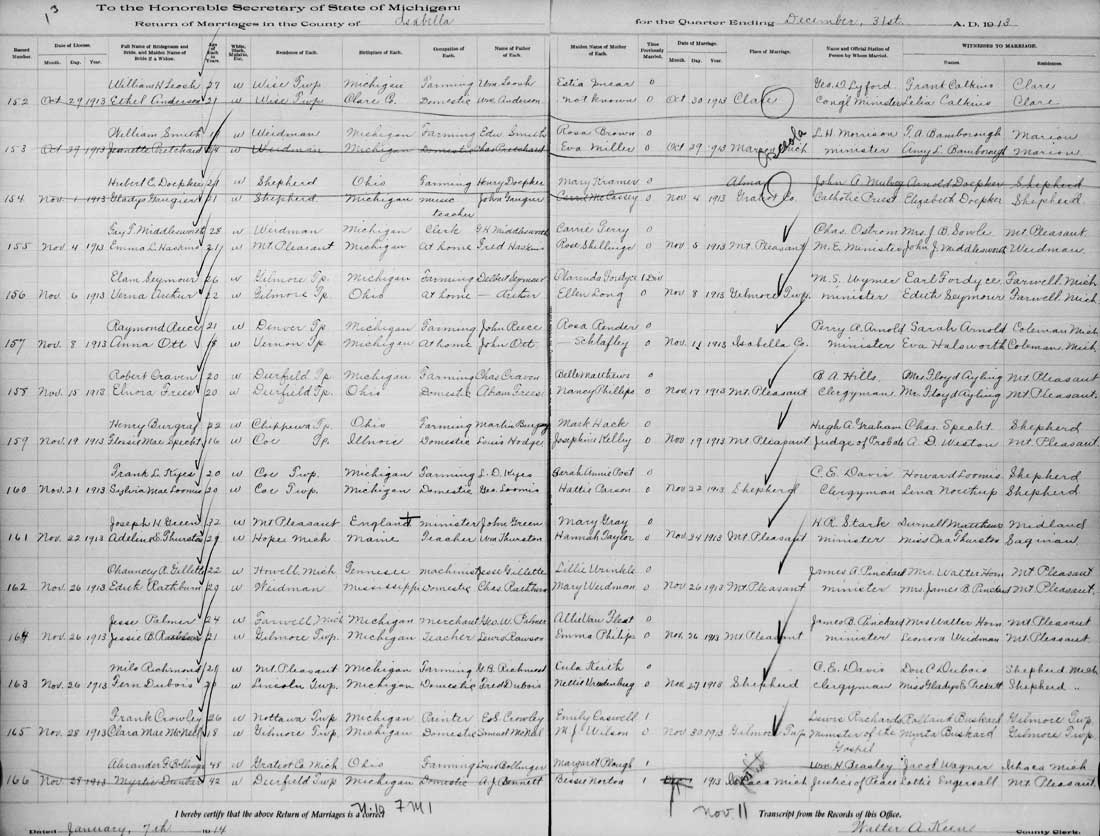 13
To the Honorable Secretary of State of Michigan:
Return of Marriages in the County of Isabella for the Quarter Ending December, 31st. A. D. 1913
Record Number. Date of License. Month. Day. Year. Full Name of Bridegroom and Bride, and Maiden Name of Bride if a Widow. Age of Each in Years. White, Black, Mulatto, Etc. Residence of Each. Birthplace of Each. Occupation of Each. Name of Father of Each. Maiden Name of Mother of Each. Time Previously Married. Date of Marriage. Month. Day. Year. Place of Marriage. Name and Official Station of Person by Whom Married. WITNESSES TO MARRIAGE. Names. Residences.
William H. 27 w Wise Twp Michigan Farming Wm Estia 0 Geo. D Lyford Grant Calkins Clare
152 Oct 29 1913 Ethel Anderson 21 w Wise Twp Clare C. Domestic Wm Anderson not known 0 Oct 30 1913 Clare Cong'l Minister Lelia Calkins Clare
William Smith w Weidman Michigan Farming Edw Smith Rosa Brown 0 Osceola L. H. Morrison F. A. Bamborough Marion
153 Oct 29 1913 Jeanette Pritchard w Weidman Michigan Domestic Chas Pritchard Eva Miller 0 Oct 29 1913 Marion Mich minister Amy L. Bamborough Marion
Hubert C. Doepker w Shepherd Ohio Farming Henry Doepker Mary Kramer 0 Alma John A Mulvey Arnold Doepker Shepherd
154 Nov. 1 1913 Gladys Gaugier 21 w Shepherd Michigan music teacher John Gaugier Carrie McCassey 0 Nov 4 1913 Gratiot Co. Catholic Priest Elizabeth Doepker Shepherd
Guy T. Middlesworth 28 w Weidman Michigan Clerk G H Middlesworth Carrie Gerry 0 Chas. Ostrom Mrs. J. B. Sowle Mt. Pleasant
155 Nov 4 1913 Emma L. Haskins 21 w Mt. Pleasant Michigan At home Fred Haskins Rose Skillings 0 Nov 5 1913 Mt. Pleasant M. E. Minister John J. Middlesworth Weidman.
Elam Seymour 26 w Gilmore Tp. Michigan Farming Delbert Seymour Clarinda Fordyce 1 Div M. S. Wymer Earl Fordyce. Farwell Mich
156 Nov. 6 1913 Verna Arthur 22 w Gilmore Tp Ohio At home — Arthur Ellen Long 0 Nov 8 1913 Gilmore Twp. minister Edith Seymour Farwell Mich.
Raymond Reece 21 w Denver Tp Michigan Farming John Reece Rosa Ponder 0 Perry A. Arnold Sarah Arnold Coleman Mich
157 Nov. 8 1913 Anna Ott 18 w Vernon Tp Michigan At home John Ott — Schlafley 0 Nov. 1913 Isabella Co. Minister Eva Halsworth Coleman. Mich.
Robert Craven 20 w Deerfield Tp Michigan Farming Chas Craven Belle Matthews 0 B. A. Hills. Mrs Floyd Ayling Mt Pleasant
158 Nov. 15 1913 Elnora Freese 20 w Deerfield Tp. Ohio Domestic Adam Freese Nancy Phillips 0 Nov. 17 1913 Mt. Pleasant Clergyman Mr. Floyd Ayling Mt Pleasant.
Henry Burgraf 22 w Chippewa Tp. Ohio Farming Martin Mark Hack 0 Hugh A Graham Chas. Specht. Shepherd
159 Nov. 19 1913 Flossie Mae Specht 16 w Coe Tp. Illnois Domestic Louis Hodge Josephine Kelly 0 Nov 19 1913 Mt Pleasant Judge of Probate A. D. Weston Mt. Pleasant.
Frank L. Kyes 20 w Coe Twp. Michigan Farming L. D. Kyes Annie Post 0 C. E. Davis Howard Loomis Shepherd
160 Nov. 21 1913 Sylvia Mae Loomis 20 w Coe Twp. Michigan Domestic Geo. Loomis Hattie Carson 0 Nov 22 1913 Shepherd Clergyman Lena Northup Shepherd
Joseph H. Green w Mt Pleasant England minister John Green Mary Gray 0 H. R. Stark Midland
161 Nov. 22 1913 Adeline S. Thurston 29 w Hope Mich Maine Teacher Wm Thurston Hannah Taylor 0 Nov 24 1913 Mt Pleasant minister Miss Ora Thurston
Chauncey A. Gillette 22 w Howell, Mich machinist Jesse Gillette Lillie Wrinkle 0 James A. Pinckard Mrs. Walter Horn Mt. Pleasant
162 Nov. 26 1913 Edith Rathburn 20 w Weidman Mississippi Domestic Chas. Rathburn Mary Weidman 0 Nov 26 1913 Mt. Pleasant minister Mrs. James B. Pinckard Mt Pleasant.
Jesse Palmer 24 w Farwell, Mich Michigan Merchant Geo. W. Palmer Allie Van Fleet 0 James B. Pinckard Mrs Walter Horn Mt. Pleasant
164 Nov. 26 1913 Jessie B. Rawson 21 w Gilmore Twp. Michigan Teacher Rawson Emma Philips 0 Nov. 26 1913 Mt Pleasant minister Leonora Weidman Mt Pleasant
Milo Richmond w Mt. Pleasant Michigan Farming G. B. Richmond Eula Keith 0 C. E. Davis Don C. Dubois Shepherd Mich
163 Nov. 26 1913 Fern Dubois w Lincoln Twp. Michigan Domestic Fred Dubois Nettie Vredenburg 0 Nov. 27 1913 Shepherd clergyman Miss Gladys E Pickett Shepherd "
Frank Crowley 26 w Nottawa Twp Michigan Painter Ed. S. Crowley Emily Caswell 1 Lewis Richards Rolland Buskard Gilmore Twp.
165 Nov. 28 1913 Clara Mae McNeil 18 w Gilmore Twp. Michigan Domestic Samuel McNeil M. J. Wilson 0 Nov 30 1913 Gilmore Twp Minister of the Gospel Myrta Buskard Gilmore Twp.
Alexander F. Bollinger 48 w Gratiot Co. Mich Ohio Farming Bollinger Margaret Plough 1 Wm. H. Beasley Jacob Wagner Ithaca Mich
166 Nov. 28 1913 Myrtie 42 w Deerfield Twp Michigan Domestic A. J. Bennett Bessie Norton 1 1913 Ithaca Mich Justice of Peace Lottie Engersall Mt. Pleasant.
I hereby certify that the above Return of Marriages is a correct Transcript from the Records of this Office.
Nov 11
Dated January, 7th 1914 Walter A. Keene County Clerk.